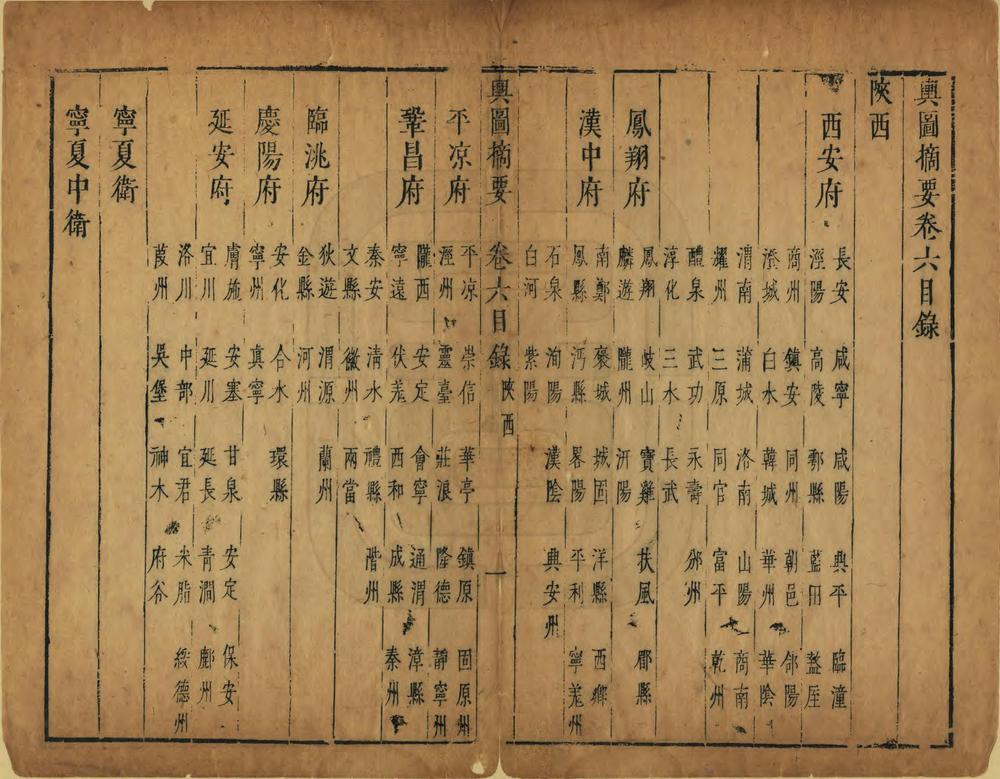 輿圖摘要卷六目錄
陝西
西安府
長安 咸寧 咸陽 興平 臨潼
涇陽 高陵 鄠縣 藍田 盩厔
商州 鎮安 同州 朝邑 郃陽
澄城 白水 韓城 華州 華陰
渭南 蒲城 洛南 山陽 商南
耀州 三原 同官 富平 乾州
醴泉 武功 永壽 邠州
淳化 三水 長武
鳳翔府
鳳翔 岐山 寶雞 扶風 郿縣
麟遊 隴州 汧陽
漢中府
南鄭 褒城 城固 洋縣 西鄉
鳳縣 沔縣 畧陽 平利 寧羌州
石泉 洵陽 漢陰 興安州
白河 紫陽
輿圖摘要 卷六目錄 陝西 一
平凉府
平凉 崇信 華亭 鎮原 固原州
涇州 靈臺 莊浪 隆德 靜寧州
鞏昌府
隴西 安定 會寧 通渭 漳縣
寧遠 伏羌 西和 成縣 秦州
秦安 清水 禮縣 階州
文縣 徽州 兩當
臨洮府
狄道 渭源 蘭州
金縣 河州
慶陽府
安化 合水 環縣
寧州 真寧
延安府
膚施 安塞 甘泉 安定 保安
宜川 延川 延長 青澗 鄜州
洛川 中部 宜君 米脂 綏德州
葭州 吳堡 神木 府谷
寧夏衛
寧夏中衛